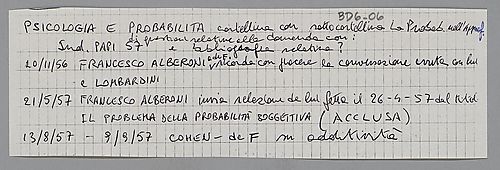 BD6-06
PSICOLOGIA E PROBABILITÀ cartellina con sottocartellina La Probab. nell'Approf.
di questioni relative alla domanda con:
Ind. PAPI 57 e bibliografia relativa?
20/11/56 FRANCESCO ALBERONI a de F. ricorda con piacere la conversazione avuta con lui
e LOMBARDINI
21/5/57 FRANCESCO ALBERONI invia relazione da lui fatta il 26-4-57 dal titolo
IL PROBLEMA DELLA PROBABILITÀ SOGGETTIVA (ACCLUSA)
13/8/57 - 9/9/57 COHEN - de F su additività